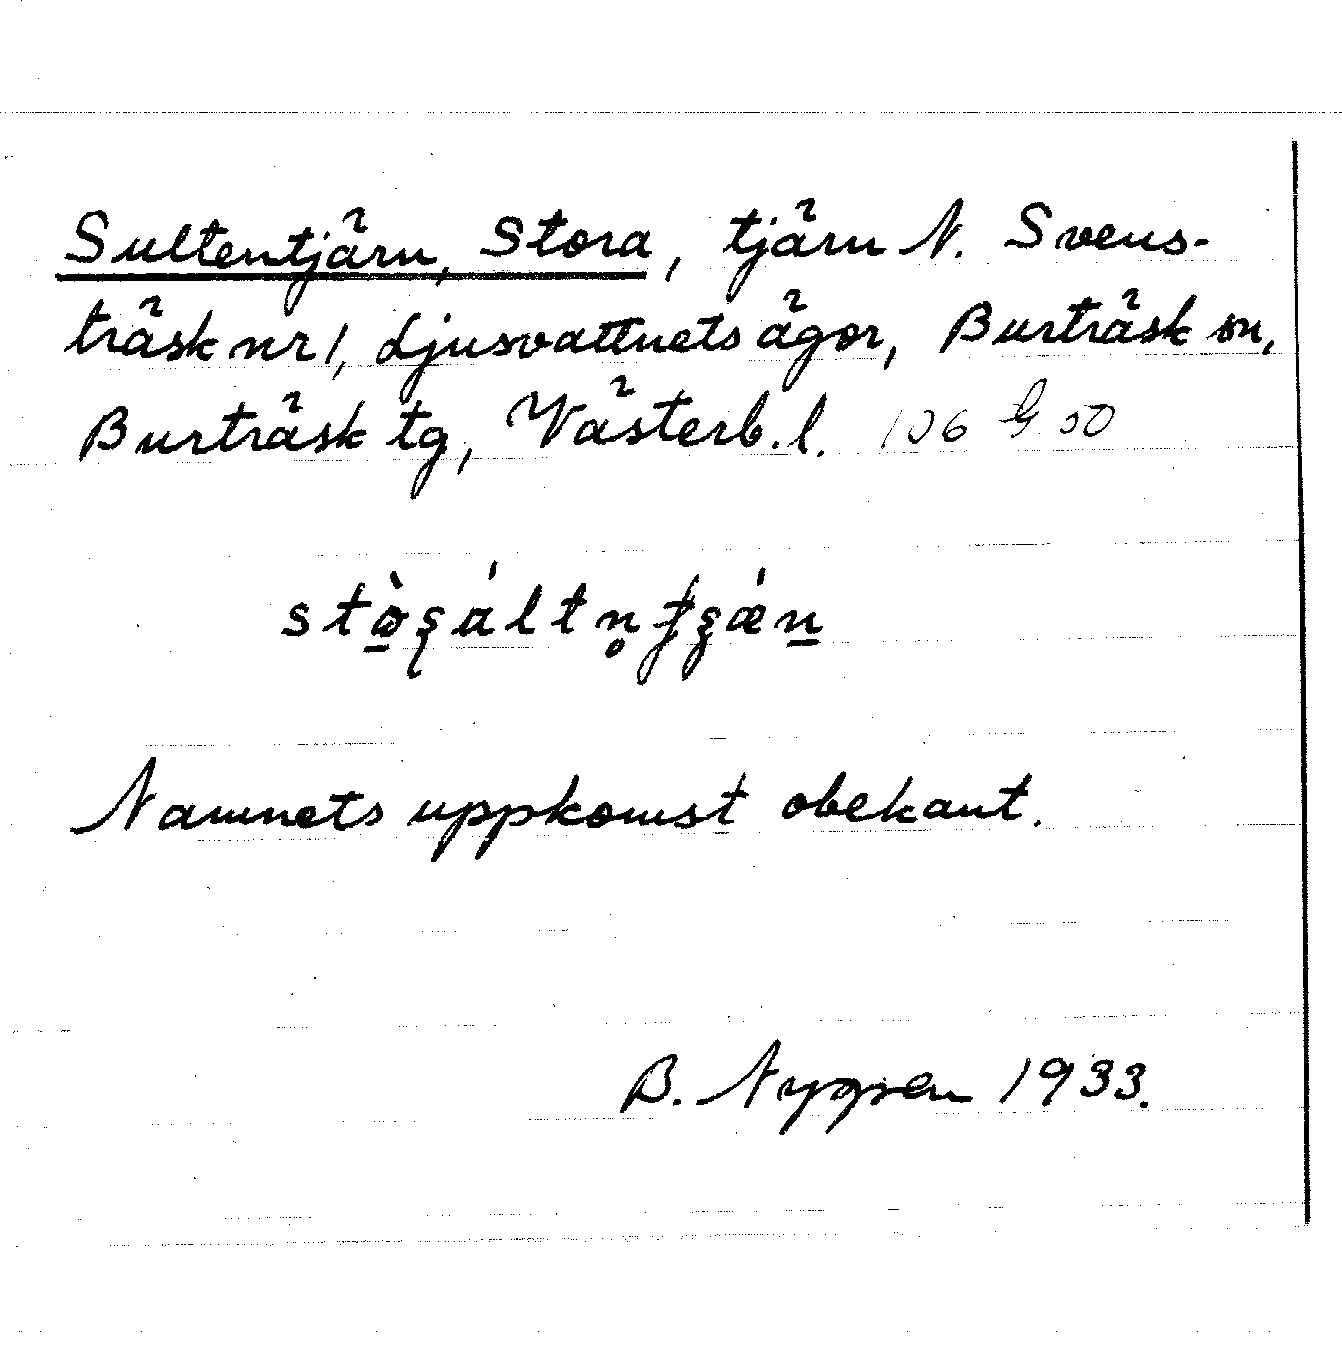 Sultentjärn, Stora, tjärn N. Svens-
träsk nr 1, Ljusvattnets ägor, Burträsk sn,
Burträsk tg, Västerb. l. 106 G 50
Namnets uppkomst obekant.
B. Nygren 1933.